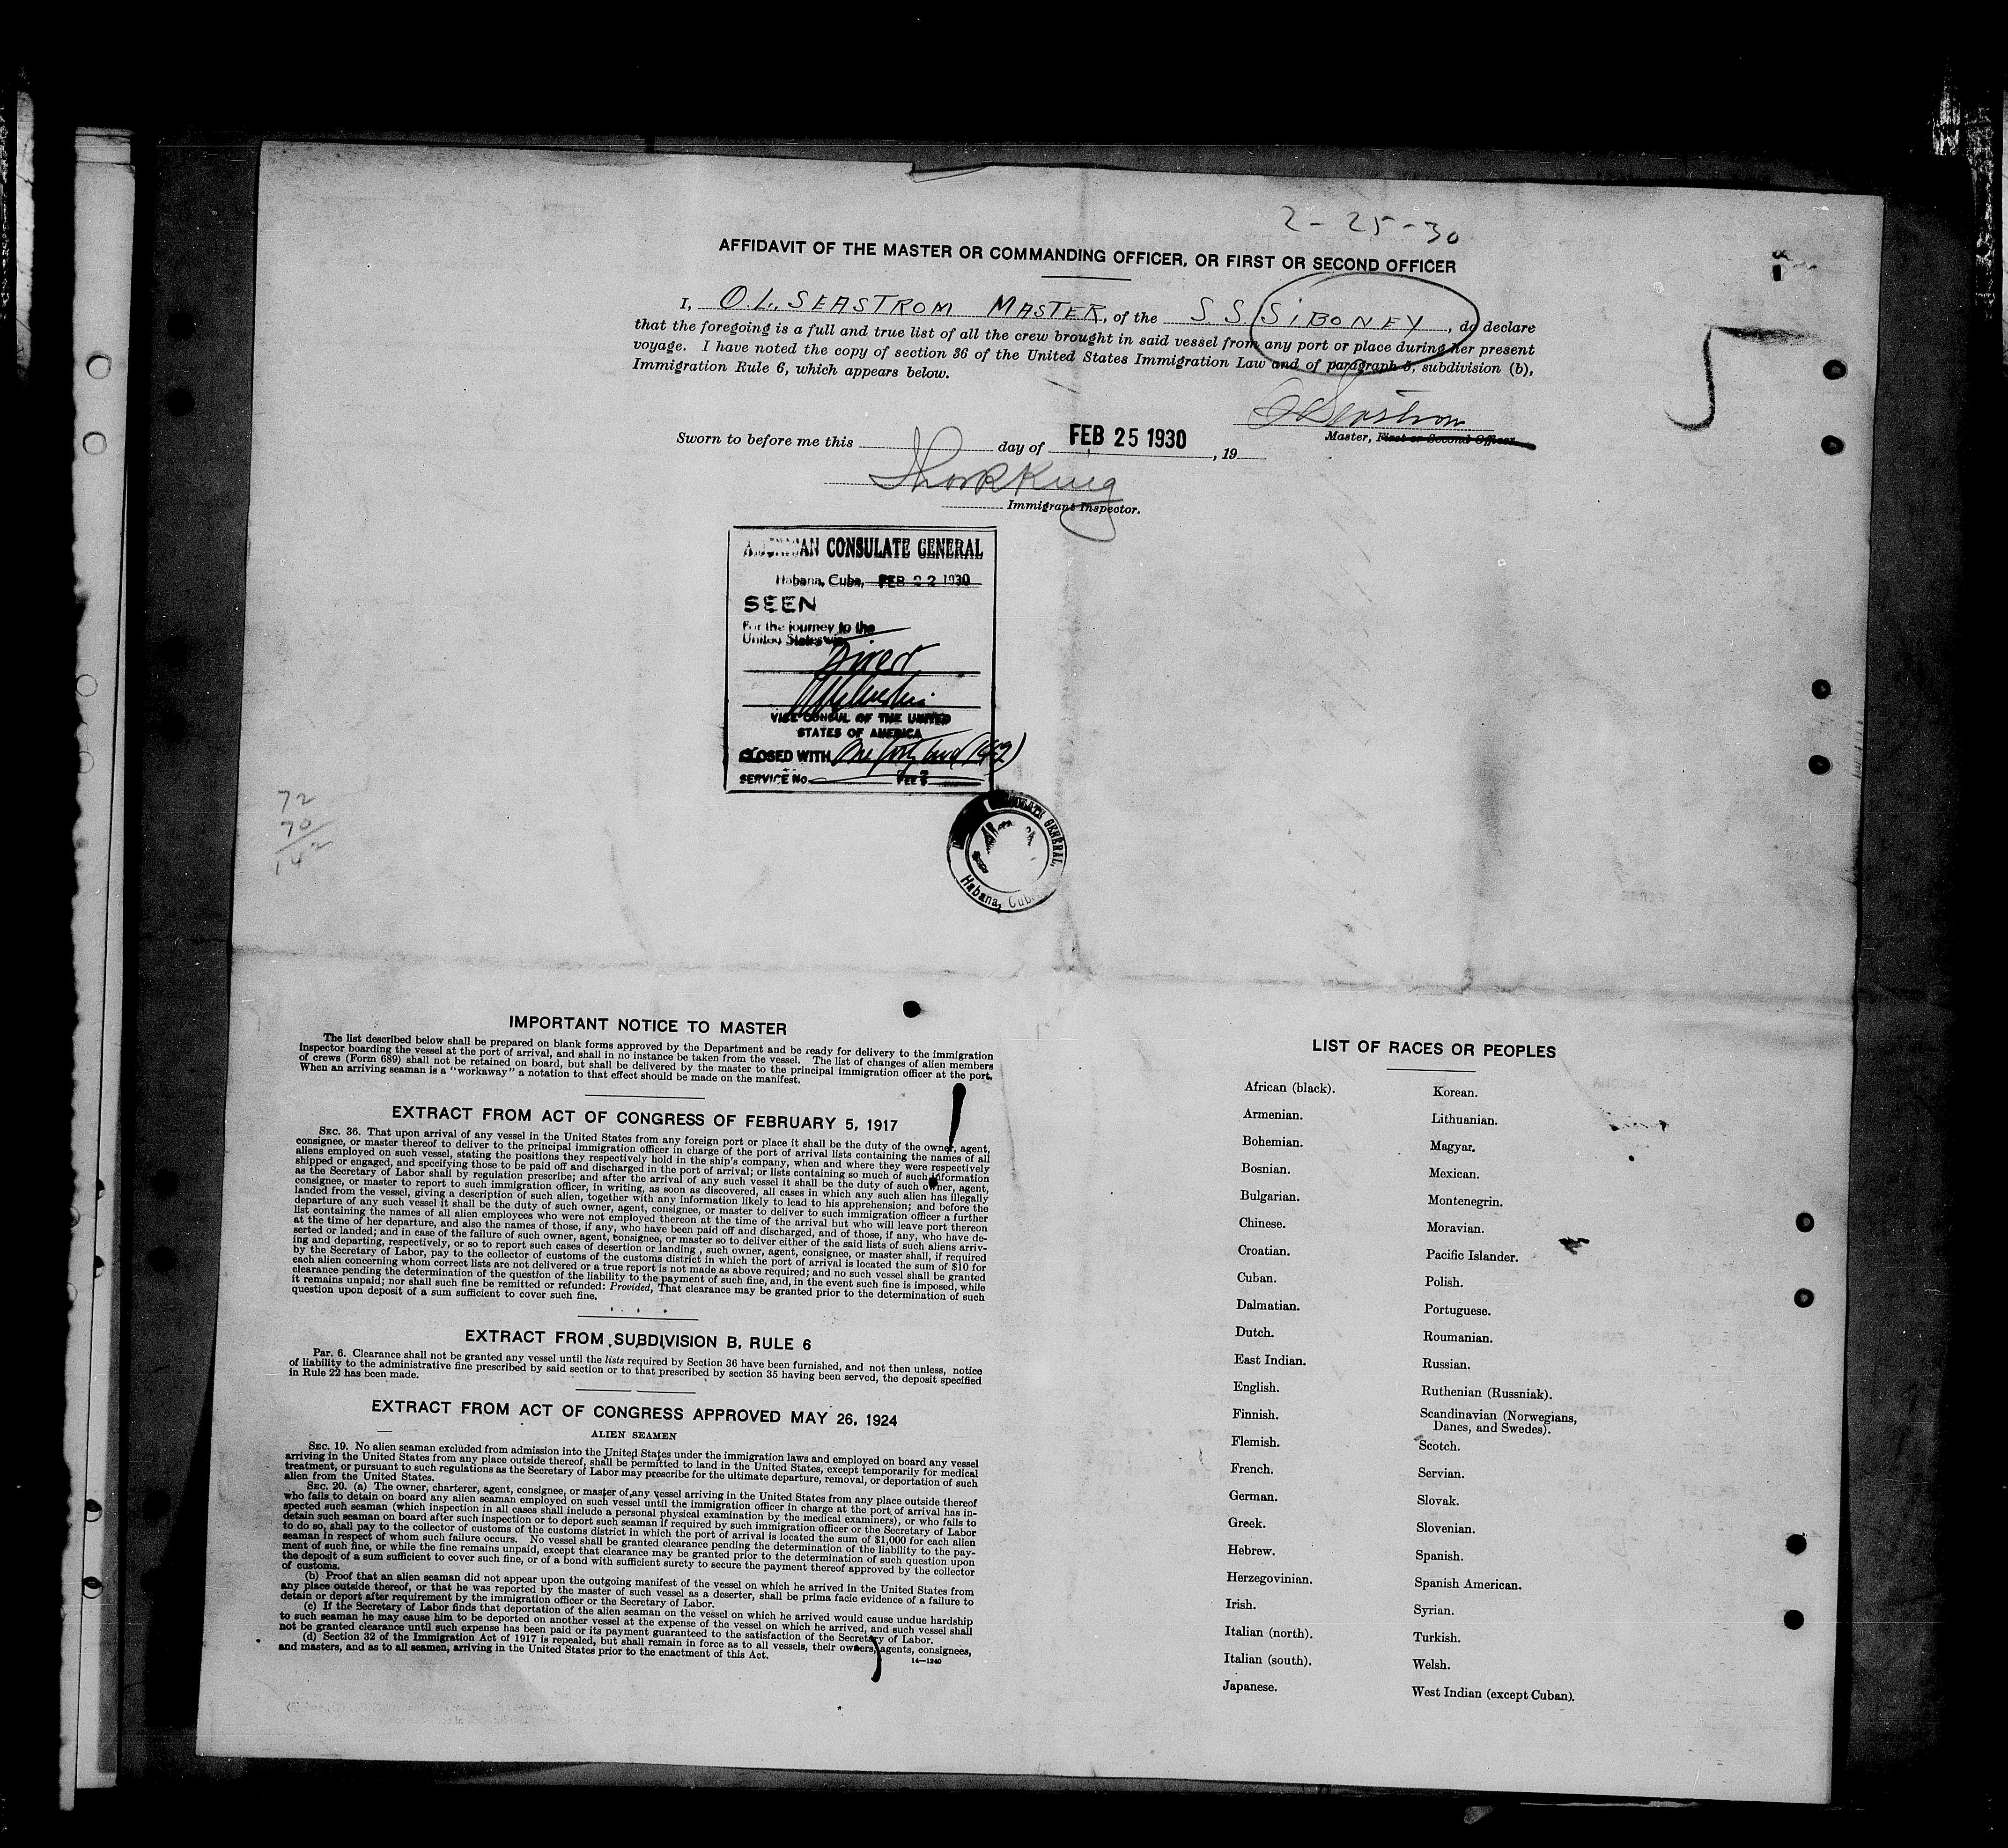 2-25-30
AFFIDAVIT OF THE MASTER OR COMMANDING OFFICER, OR FIRST OR SECOND OFFICER
I, O. L. SEASTROM MASTER, of the S. S. SIBONEY, do declare
that the foregoing is a full and true list of all the crew brought in said vessel from any port or place during her present
voyage. I have noted the copy of section 36 of the United States Immigration Law and of paragraph 5, subdivision (b),
Immigration Rule 6, which appears below.
5
O L Seastrom
Master, First or Second Officer.
Sworn to before me this day of FEB 25 1930, 19
King
Immigrant Inspector.
AMERICAN CONSULATE GENERAL
Habana, Cuba, FEB 22 1930
SEEN
For the journey to the
United States via
Direct
VICE CONSUL OF THE UNITED
STATES OF AMERICA
CLOSED WITH One forty two (142)
SERVICE No. FEE
CONSULATE GENERAL,
Habana, Cuba
72
70
142
IMPORTANT NOTICE TO MASTER
The list described below shall be prepared on blank forms approved by the Department and be ready for delivery to the immigration
inspector boarding the vessel at the port of arrival, and shall in no instance be taken from the vessel. The list of changes of alien members
of crews (Form 689) shall not be retained on board, but shall be delivered by the master to the principal immigration officer at the port.
When an arriving seaman is a "workaway" a notation to that effect should be made on the manifest.
EXTRACT FROM ACT OF CONGRESS OF FEBRUARY 5, 1917
SEC. 36. That upon arrival of any vessel in the United States from any foreign port or place it shall be the duty of the owner, agent,
consignee, or master thereof to deliver to the principal immigration officer in charge of the port of arrival lists containing the names of all
aliens employed on such vessel, stating the positions they respectively hold in the ship's company, when and where they were respectively
shipped or engaged, and specifying those to be paid off and discharged in the port of arrival; or lists containing so much of such information
as the Secretary of Labor shall by regulation prescribe; and after the arrival of any such vessel it shall be the duty of such owner, agent,
consignee, or master to report to such immigration officer, in writing, as soon as discovered, all cases in which any such alien has illegally
landed from the vessel, giving a description of such alien, together with any information likely to lead to his apprehension; and before the
departure of any such vessel it shall be the duty of such owner, agent, consignee, or master to deliver to such immigration officer a further
list containing the names of all alien employees who were not employed thereon at the time of the arrival but who will leave port thereon
at the time of her departure, and also the names of those, if any, who have been paid off and discharged, and of those, if any, who have de-
serted or landed; and in case of the failure of such owner, agent, consignee, or master so to deliver either of the said lists of such aliens arriv-
ing and departing, respectively, or so to report such cases of desertion or landing, such owner, agent, consignee, or master shall, if required
by the Secretary of Labor, pay to the collector of customs of the customs district in which the port of arrival is located the sum of $10 for
each alien concerning whom correct lists are not delivered or a true report is not made as above required; and no such vessel shall be granted
clearance pending the determination of the question of the liability to the payment of such fine, and, in the event such fine is imposed, while
it remains unpaid; nor shall such fine be remitted or refunded: Provided, That clearance may be granted prior to the determination of such
question upon deposit of a sum sufficient to cover such fine.
EXTRACT FROM SUBDIVISION B, RULE 6
Par. 6. Clearance shall not be granted any vessel until the lists required by Section 36 have been furnished, and not then unless, notice
of liability to the administrative fine prescribed by said section or to that prescribed by section 35 having been served, the deposit specified
in Rule 22 has been made.
EXTRACT FROM ACT OF CONGRESS APPROVED MAY 26, 1924
ALIEN SEAMEN
SEC. 19. No alien seaman excluded from admission into the United States under the immigration laws and employed on board any vessel
arriving in the United States from any place outside thereof, shall be permitted to land in the United States, except temporarily for medical
treatment, or pursuant to such regulations as the Secretary of Labor may prescribe for the ultimate departure, removal, or deportation of such
alien from the United States.
SEC. 20. (a) The owner, charterer, agent, consignee, or master of any vessel arriving in the United States from any place outside thereof
who fails to detain on board any alien seaman employed on such vessel until the immigration officer in charge at the port of arrival has in-
spected such seaman (which inspection in all cases shall include a personal physical examination by the medical examiners), or who fails to
detain such seaman on board after such inspection or to deport such seaman if required by such immigration officer or the Secretary of Labor
to do so, shall pay to the collector of customs of the customs district in which the port of arrival is located the sum of $1,000 for each alien
seaman in respect of whom such failure occurs. No vessel shall be granted clearance pending the determination of the liability to the pay-
ment of such fine, or while the fine remains unpaid, except that clearance may be granted prior to the determination of such question upon
the deposit of a sum sufficient to cover such fine, or of a bond with sufficient surety to secure the payment thereof approved by the collector
of customs.
(b) Proof that an alien seaman did not appear upon the outgoing manifest of the vessel on which he arrived in the United States from
any place outside thereof, or that he was reported by the master of such vessel as a deserter, shall be prima facie evidence of a failure to
detain or deport after requirement by the immigration officer or the Secretary of Labor.
(c) If the Secretary of Labor finds that deportation of the alien seaman on the vessel on which he arrived would cause undue hardship
to such seaman he may cause him to be deported on another vessel at the expense of the vessel on which he arrived, and such vessel shall
not be granted clearance until such expense has been paid or its payment guaranteed to the satisfaction of the Secretary of Labor.
(d) Section 32 of the Immigration Act of 1917 is repealed, but shall remain in force as to all vessels, their owners, agents, consignees,
and masters, and as to all seamen, arriving in the United States prior to the enactment of this Act.
14—1240
LIST OF RACES OR PEOPLES
African (black).
Armenian.
Bohemian.
Bosnian.
Bulgarian.
Chinese.
Croatian.
Cuban.
Dalmatian.
Dutch.
East Indian.
English.
Finnish.
Flemish.
French.
German.
Greek.
Hebrew.
Herzegovinian.
Irish.
Italian (north).
Italian (south).
Japanese.
Korean.
Lithuanian.
Magyar.
Mexican.
Montenegrin.
Moravian.
Pacific Islander.
Polish.
Portuguese.
Roumanian.
Russian.
Ruthenian (Russniak).
Scandinavian (Norwegians,
Danes, and Swedes).
Scotch.
Servian.
Slovak.
Slovenian.
Spanish.
Spanish American.
Syrian.
Turkish.
Welsh.
West Indian (except Cuban).